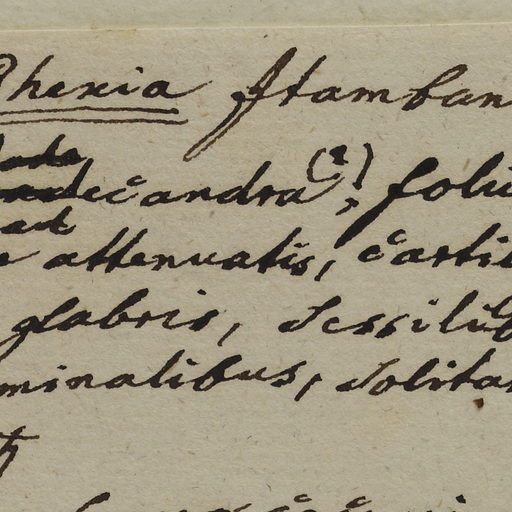 Rhexia Stamban
decandra(?), foliis
attenuatis, cartil
glabris, sessilib
minalibus, solitar
♄